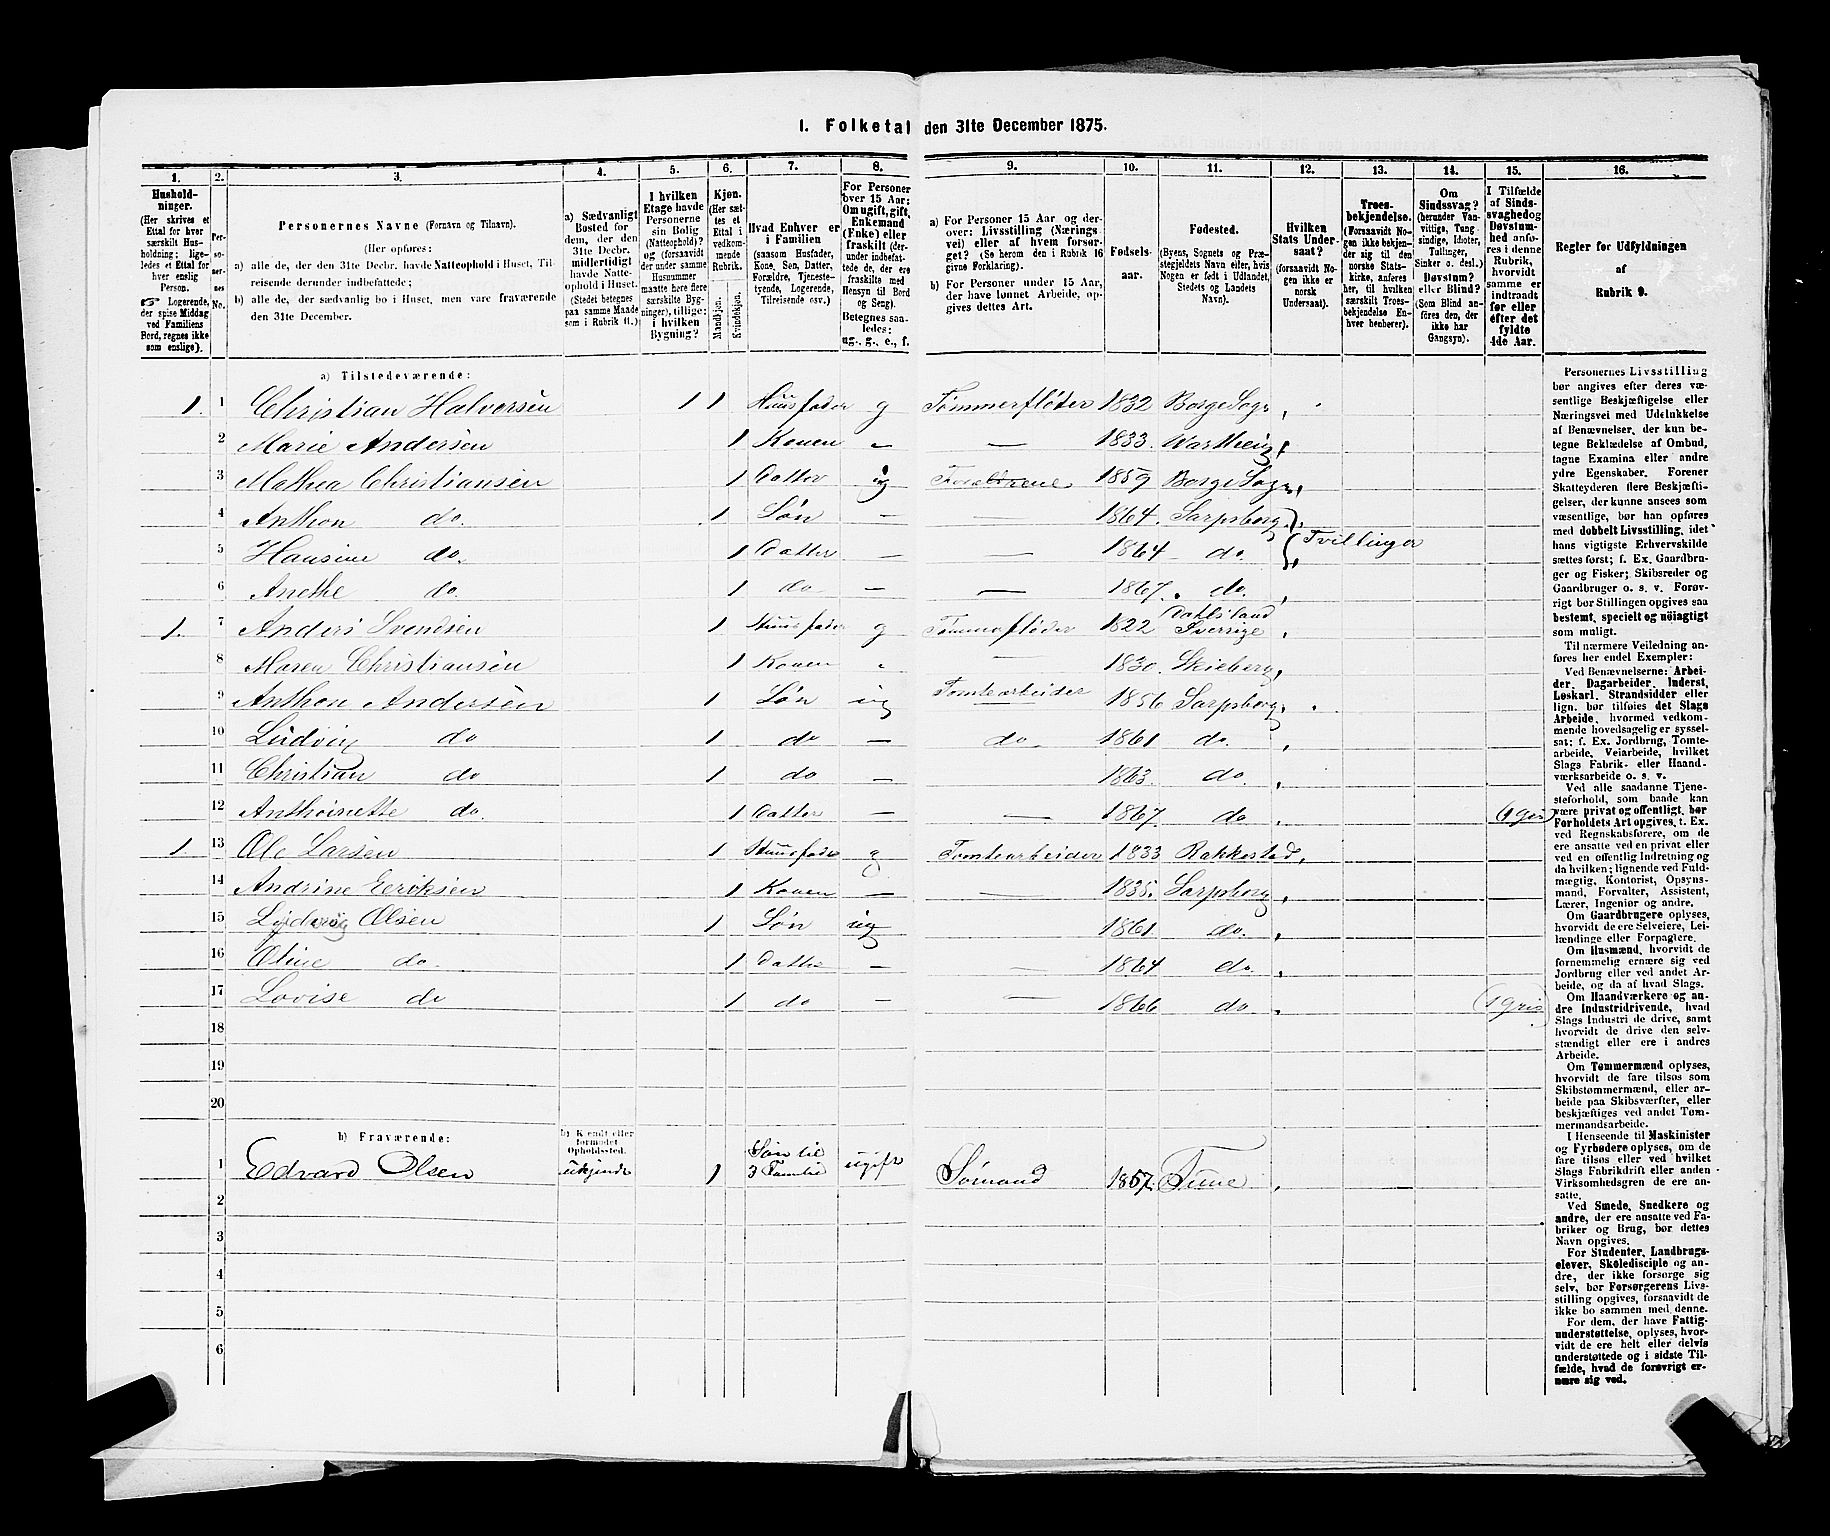 I. Folketal den 31te December 1875.
1. 2. 3. 4. 5. 6. 7. 8. 9. 10. 11. 12. 13. 14. 15. 16.
Husholdninger.
(Her skrives et
Ettal for hver
særskilt Husholdning;
ligeledes et Ettal for
hver enslig
Person.
☞ Logerende,
der spise Middag
ved Familiens
Bord, regnes ikke
som enslige).
Personernes No.
Personernes Navne (Fornavn og Tilnavn).
(Her opføres:
a) alle de, der den 31te Decbr. havde Natteophold i Huset, Tilreisende derunder indbefattede;
b) alle de, der sædvanlig bo i Huset, men vare fraværende
den 31te December.
a) Sædvanligt
Bosted for
dem, der den
31te Decbr.
midlertidigt
havde Natteophold i Huset.
(Stedet betegnes
paa samme Maade
som i Rubrik 11.)
I hvilken
Etage havde
Personerne
sin Bolig
(Natteophold)?
og (forsaavidt
der under samme
Husnummer
maatte høre flere
særskilte Bygninger), tillige:
i hvilken
Bygning?
Kjøn.
(Her sættes et
Ettal i
vedkommende
Rubrik.
Mandkjøn.
Kvindekjøn.
Hvad Enhver er
i Familien
(saasom Husfader,
Kone, Søn, Datter,
Forældre, Tjenestetyende, Logerende,
Tilreisende osv.)
For Personer
over 15 Aar:
Om ugift, gift,
Enkemand
(Enke) eller
fraskilt (derunder indbefattede de, der ere
fraskilte med
Hensyn til Bord
og Seng).
Betegnes saaledes:
ug., g., e., f.
a) For Personer 15 Aar og derover: Livsstilling (Næringsvei) eller af hvem forsørget? (Se herom den i Rubrik 16
givne Forklaring).
b) For Personer under 15 Aar,
der have lønnet Arbeide, opgives dettes Art.
Fødselsaar.
Fødested.
(Byens, Sognets og Præstegjeldets Navn eller, hvis
Nogen er født i Udlandet,
Stedets og Landets
Navn).
Hvilken
Stats Undersaat?
(forsaavidt Nogen ikke er
norsk
Undersaat).
Troesbekjendelse.
(Forsaavidt Nogen ikke bekjender sig til den
norske Statskirke, anføres
her, til hvilken
særskilt Troesbekjendelse Enhver henhører).
Om
Sindssvag?
(herunder Vanvittige, Tungsindige, Idioter,
Tullinger,
Sinker o. desl.)
Døvstum?
eller Blind?
(Som Blind anføres den, der
ikke har
Gangsyn).
I Tilfælde
af Sindssvaghed og
Døvstumhed anføres i denne
Rubrik,
hvorvidt
samme er
indtraadt
før eller
efter det
fyldte
4de Aar.
Regler for Udfyldningen
af
Rubrik 9.
a) Tilstedeværende:
1. 1 Christian Halvorsen 1 1 Huusfader g Tømmerfløder 1832 Borge Sogn
2 Marie Andersen 1 Konen — — 1833.
3 Mathea Christiansen 1 Datter ug 1859 Borge Sogn
4 Anthon do. 1 Søn — — 1864. Sarpsborg
5 Hansine do. 1 Datter — — 1864 do. Tvillinger
6 Anethe do. 1 do — — 1867. do.
1. 7 Anders Svendsen 1 Huusfader g Tømmerfløder 1822 Dahlsland Sverrige
8 Maren Christiansen 1 Konen — 1830. Skieberg
9 Anthon Andersen 1 Søn ug Tomtearbeider 1856 Sarpsborg
10 Ludvig do 1 do — do 1861 do.
11 Christian do 1 do — 1863. do.
12 Anthoinette do. 1 Datter — — 1867. do. (1 gris)
1. 13 Ole Larsen 1 Huusfader g Tomtearbeider 1833 Rakkestad
14 Andrine Eeriksen 1 Konen — — 1835. Sarpsborg
15 Olsen 1 Søn ug 1861 do.
16 Oline do. 1 Datter — — 1864 do.
17 Lovise do 1 do — — 1866 do. (1 gris)
18
19
20
b) Fraværende:
b) Kendt eller
formodet
Opholdssted.
1 Edvard Olsen ukjendt 1 Søn til 3 Familie ugift Sømand 1857.
2
3
4
5
6
Personernes Livsstilling
bør angives efter deres væsentlige Beskjæftigelse eller
Næringsvei med Udelukkelse
af Benævnelser, der kun betegne Beklædelse af Ombud,
tagne Examina eller andre
ydre Egenskaber. Forener
Skatteyderen flere Beskjæftigelser, der kunne ansees som
væsentlige, bør han opføres
med dobbelt Livsstilling, idet
hans vigtigste Erhvervskilde
sættes først; f. Ex. Gaardbruger og Fisker; Skibsreder og
Gaardbruger o. s. v. Forøvrigt bør Stillingen opgives saa
bestemt, specielt og nöiagtigt
som muligt.
Til nærmere Veiledning anføres her endel Exempler:
Ved Benævnelserne: Arbeider, Dagarbeider, Inderst,
Løskarl, Strandsidder eller
lign. bør tilføies det Slags
Arbeide, hvormed vedkommende hovedsagelig er sysselsat; f. Ex. Jordbrug, Tomtearbeide, Veiarbeide, hvilket
Slags Fabrik- eller Haandværksarbeide o. s. v.
Ved alle saadanne Tjenesteforhold, som baade kan
være privat og offentligt, bør
Forholdets Art opgives, t. Ex.
ved Regnskabsførere, om de
ere ansatte ved en privat eller
ved en offentlig Indretning og
da hvilken; lignende ved Fuldmægtig, Kontorist, Opsynsmand, Forvalter, Assistent,
Lærer, Ingeniør og andre.
Om Gaardbrugere oplyses,
hvorvidt de ere Selveiere, Leilændinge eller Forpagtere.
Om Husmænd, hvorvidt de
fornemmelig ernære sig ved
Jordbrug eller ved andet Arbeide, og da af hvad Slags.
Om Haandværkere og andre Industridrivende, hvad
Slags Industri de drive, samt
hvorvidt de drive den selvstændigt eller ere i andres
Arbeide.
Om Tømmermænd oplyses,
hvorvidt de fare tilsøs som
Skibstømmermænd, eller arbeide paa Skibsværfter, eller
beskjæftiges ved andet Tømmermandsarbeide.
I Henseende til Maskinister
og Fyrbødere oplyses, om de
fare tilsøs eller ved hvilket
Slags Fabrikdrift eller anden
Virksomhedsgren de ere ansatte.
Ved Smede, Snedkere og
andre, der ere ansatte ved Fabriker og Brug, bør dettes
Navn opgives.
For Studenter, Landbrugselever, Skoledisciple og andre, der ikke forsørge sig
selv, bør Forsørgerens Livsstilling opgives, forsaavidt de
ikke bo sammen med denne.
For dem, der have Fattigunderstøttelse, oplyses, hvorvidt de ere helt eller delvis
understøttede og i sidste Tilfælde, hvad de forøvrigt ernære sig ved.